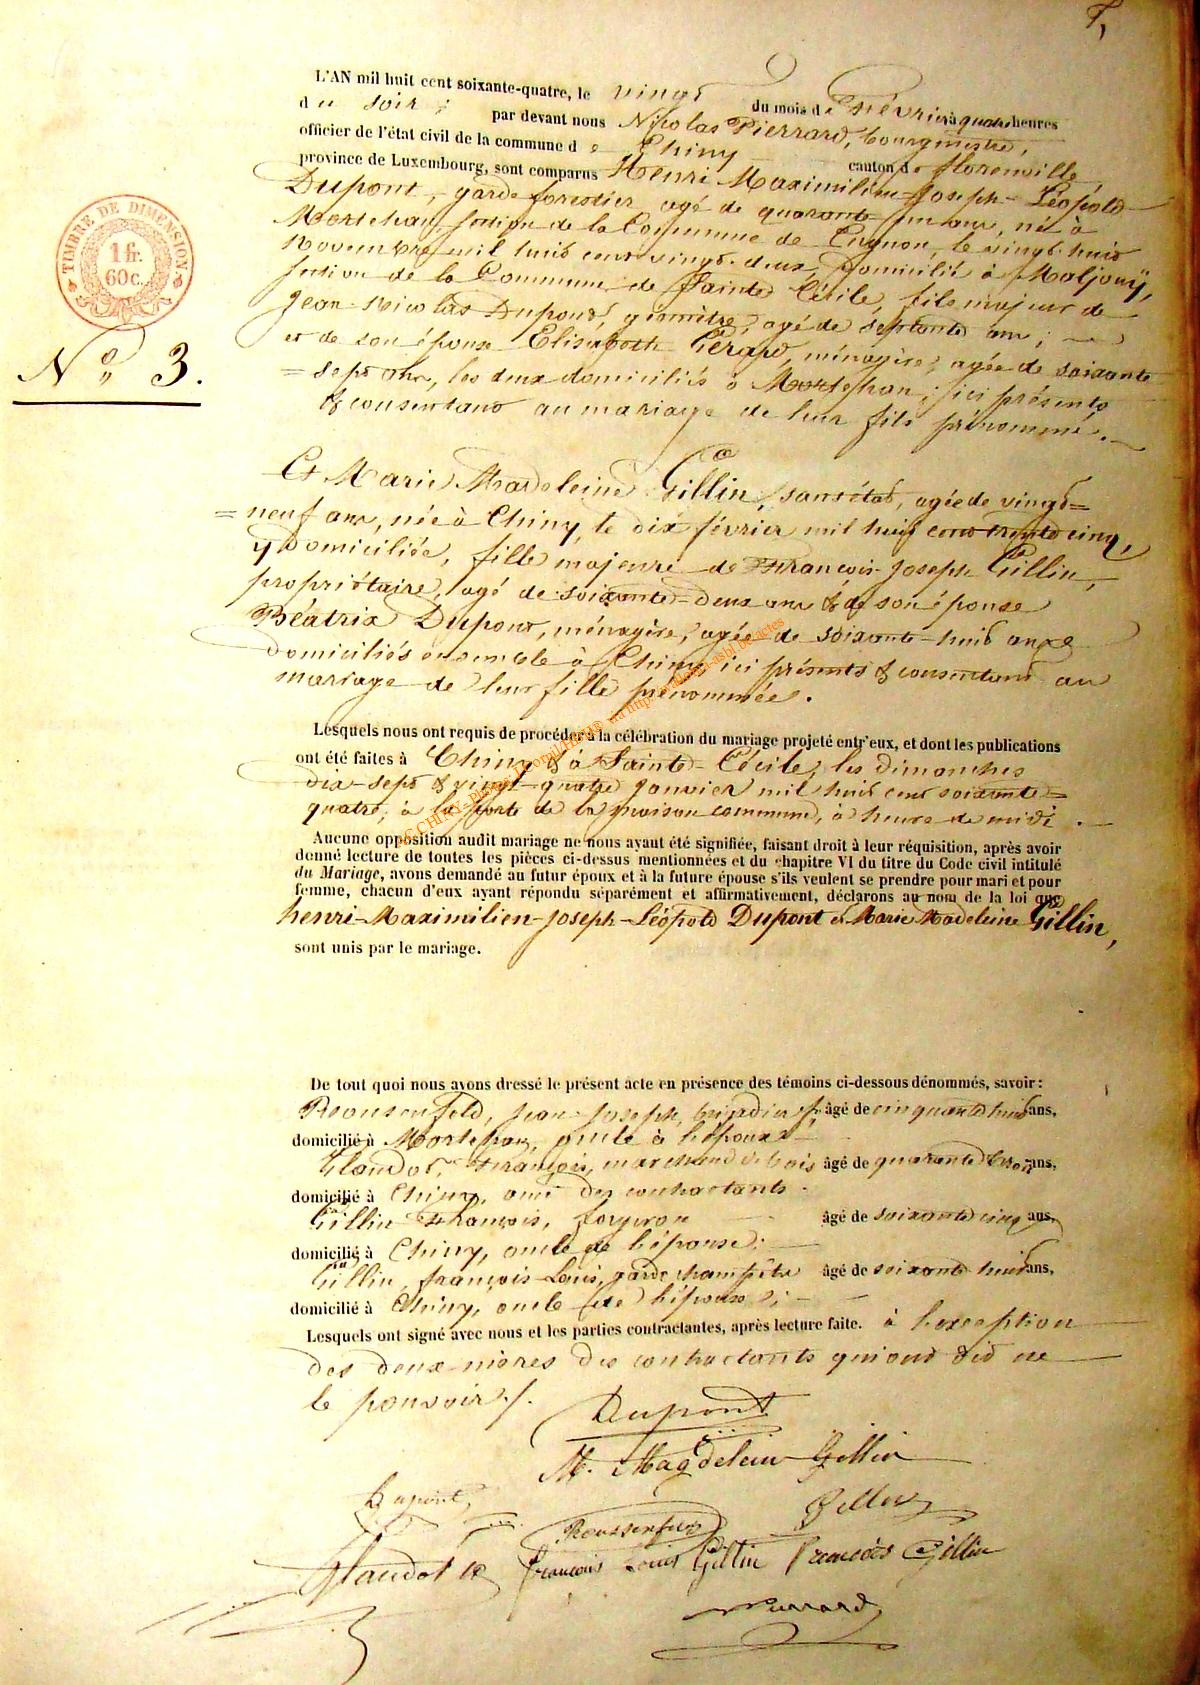 TIMBRE DE DIMENSION
1 fr.
60 c.
N° 3.
L'AN mil huit cent soixante-quatre, le vingt du mois de février à quatre heures
du soir; par devant nous Nicolas Pierrard, bourgmestre,
officier de l'état civil de la commune de Chiny canton de florenville
province de Luxembourg, sont comparus Henri Maximilien-Joseph-Léopold
Dupont, garde forestier agé de quarante-un ans, né à
Mortehan, section de la Commune de Cugnon, le vingt-huit
novembre mil huit cent vingt-deux, domicilié à
section de la Commune de Sainte Cécile, fils majeur de
Jean-Nicolas Dupont, géomètre, agé de septante ans;
et de son épouse Elisabeth Gérard, ménagère, agée de soixante
= sept ans, les deux domiciliés à Mortehan, ici présents
& consentans au mariage de leur fils prénommé.
Et Marie Madeleine Gillin, sans état, agée de vingt=
= neuf ans, née à Chiny, le dix février mil huit cent trente cinq,
y domiciliée, fille majeure de François-Joseph Gillin,
propriétaire, agé de soixante-deux ans & de son épouse
Béatrix Dupont, ménagère, agée de soixante-huit ans
domiciliés ensemble à Chiny, ici présents & consentans au
mariage de leur fille prénommée.
Lesquels nous ont requis de procéder à la célébration du mariage projeté entr'eux, et dont les publications
ont été faites à Chiny & à Sainte-Cécile, les dimanches
dix-sept & vingt-quatre janvier mil huit cent soixante=
quatre, à la porte de la maison commune, à heure de midi.
Aucune opposition audit mariage ne nous ayant été signifiée, faisant droit à leur réquisition, après avoir
donné lecture de toutes les pièces ci-dessus mentionnées et du chapitre VI du titre du Code civil intitulé
du Mariage, avons demandé au futur époux et à la future épouse s'ils veulent se prendre pour mari et pour
femme, chacun d'eux ayant répondu séparément et affirmativement, déclarons au nom de la loi que
henri-Maximilien-Joseph-Léopold Dupont et Marie Madeleine Gillin,
sont unis par le mariage.
De tout quoi nous avons dressé le présent acte en présence des témoins ci-dessous dénommés, savoir:
Jean-Joseph, brigadier f. âgé de cinquante huit ans,
domicilié à Mortehan, oncle à l'époux
Glaudot, François, marchand de bois âgé de quarante trois ans,
domicilié à Chiny, ami des contractants.
Gillin François, forgeron âgé de soixante cinq ans,
domicilié à Chiny, oncle de l'épouse;
Gillin, françois-Louis, garde champêtre âgé de soixante huit ans,
domicilié à Chiny, oncle de l'épouse;
Lesquels ont signé avec nous et les parties contractantes, après lecture faite. à l'exception
des deux mères des contractants qui ont dit ne
le pouvoir./.
Dupont
M. Magdelein Gillin
Dupont Gillin
Glaudot François Louis Gillin François Gillin
Pierrard